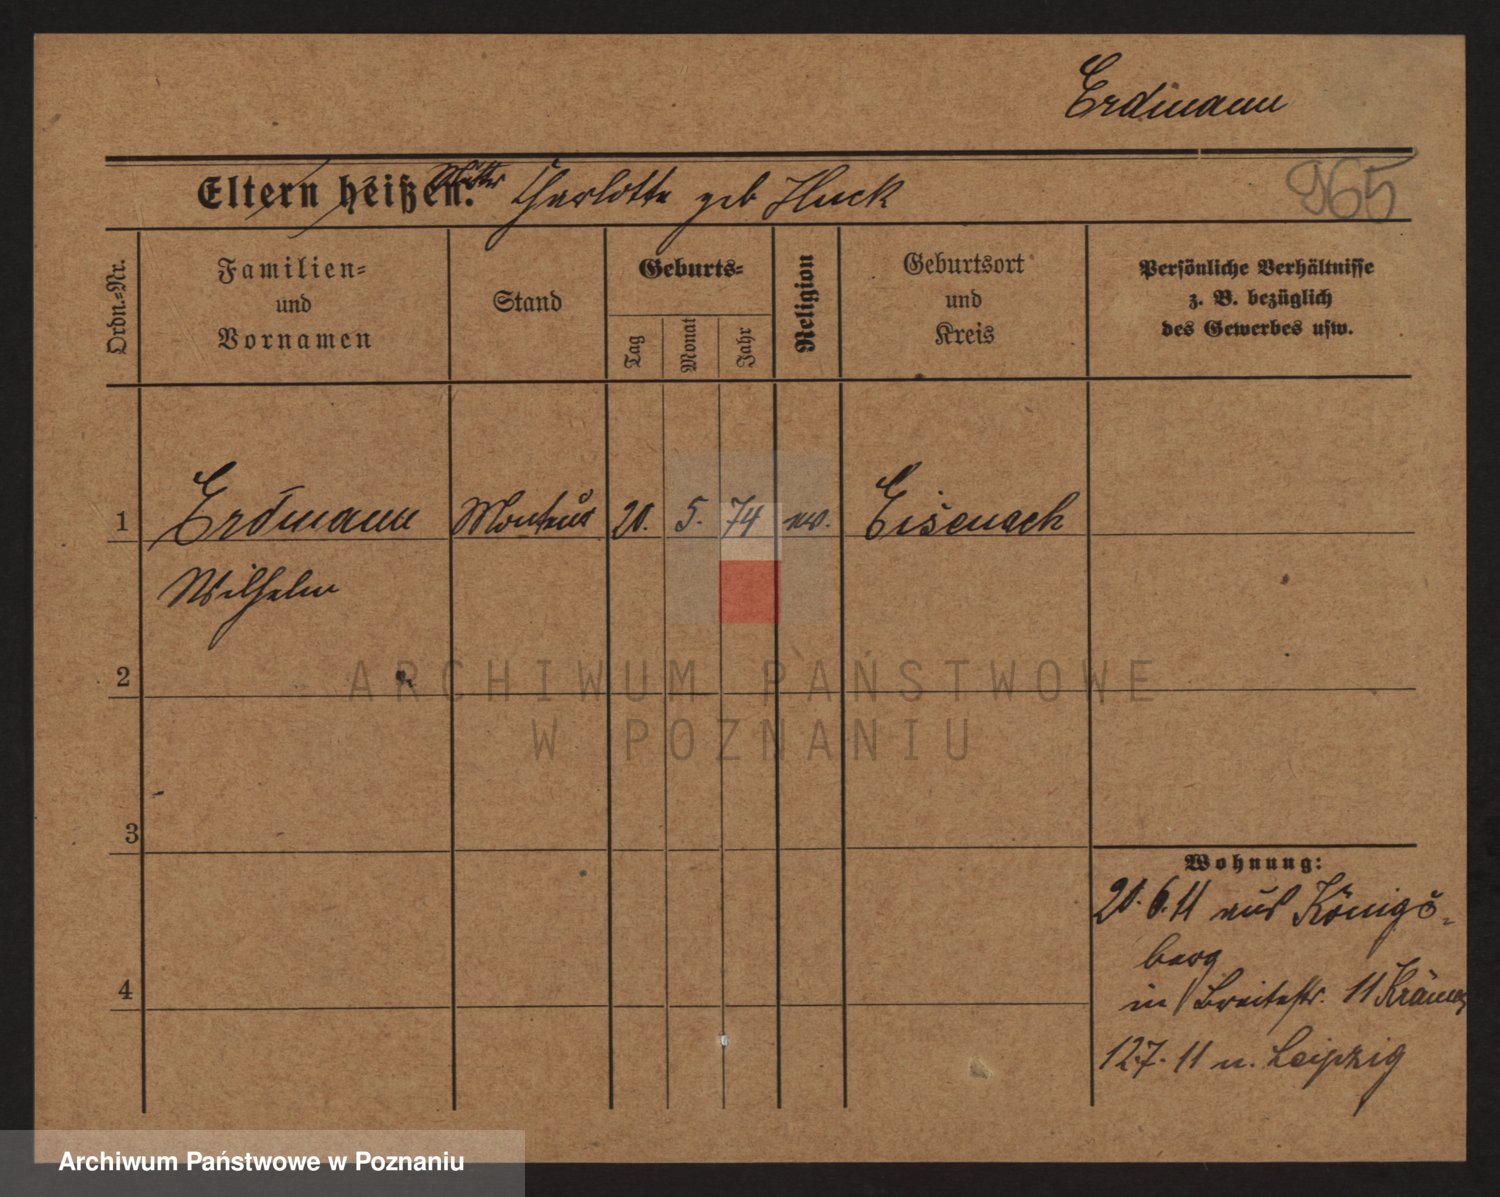 Erdmann
965
Eltern heißen: Mutter Charlotte geb Huck
Ordn.-Nr.
Familien-
und
Vornamen
Stand
Geburts-
Tag
Monat
Jahr
Religion
Geburtsort
und
Kreis
Persönliche Verhältnisse
z. B. bezüglich
des Gewerbes usw.
1 Erdmann Monteur 20. 5. 74 ev. Eisenach
Wilhelm
2
3
4
Wohnung:
20.6.11 aus Königs-
berg
in Breitestr. 11
12.7.11 n. Leipzig
ARCHIWUM PAŃSTWOWE
W POZNANIU
Archiwum Państwowe w Poznaniu